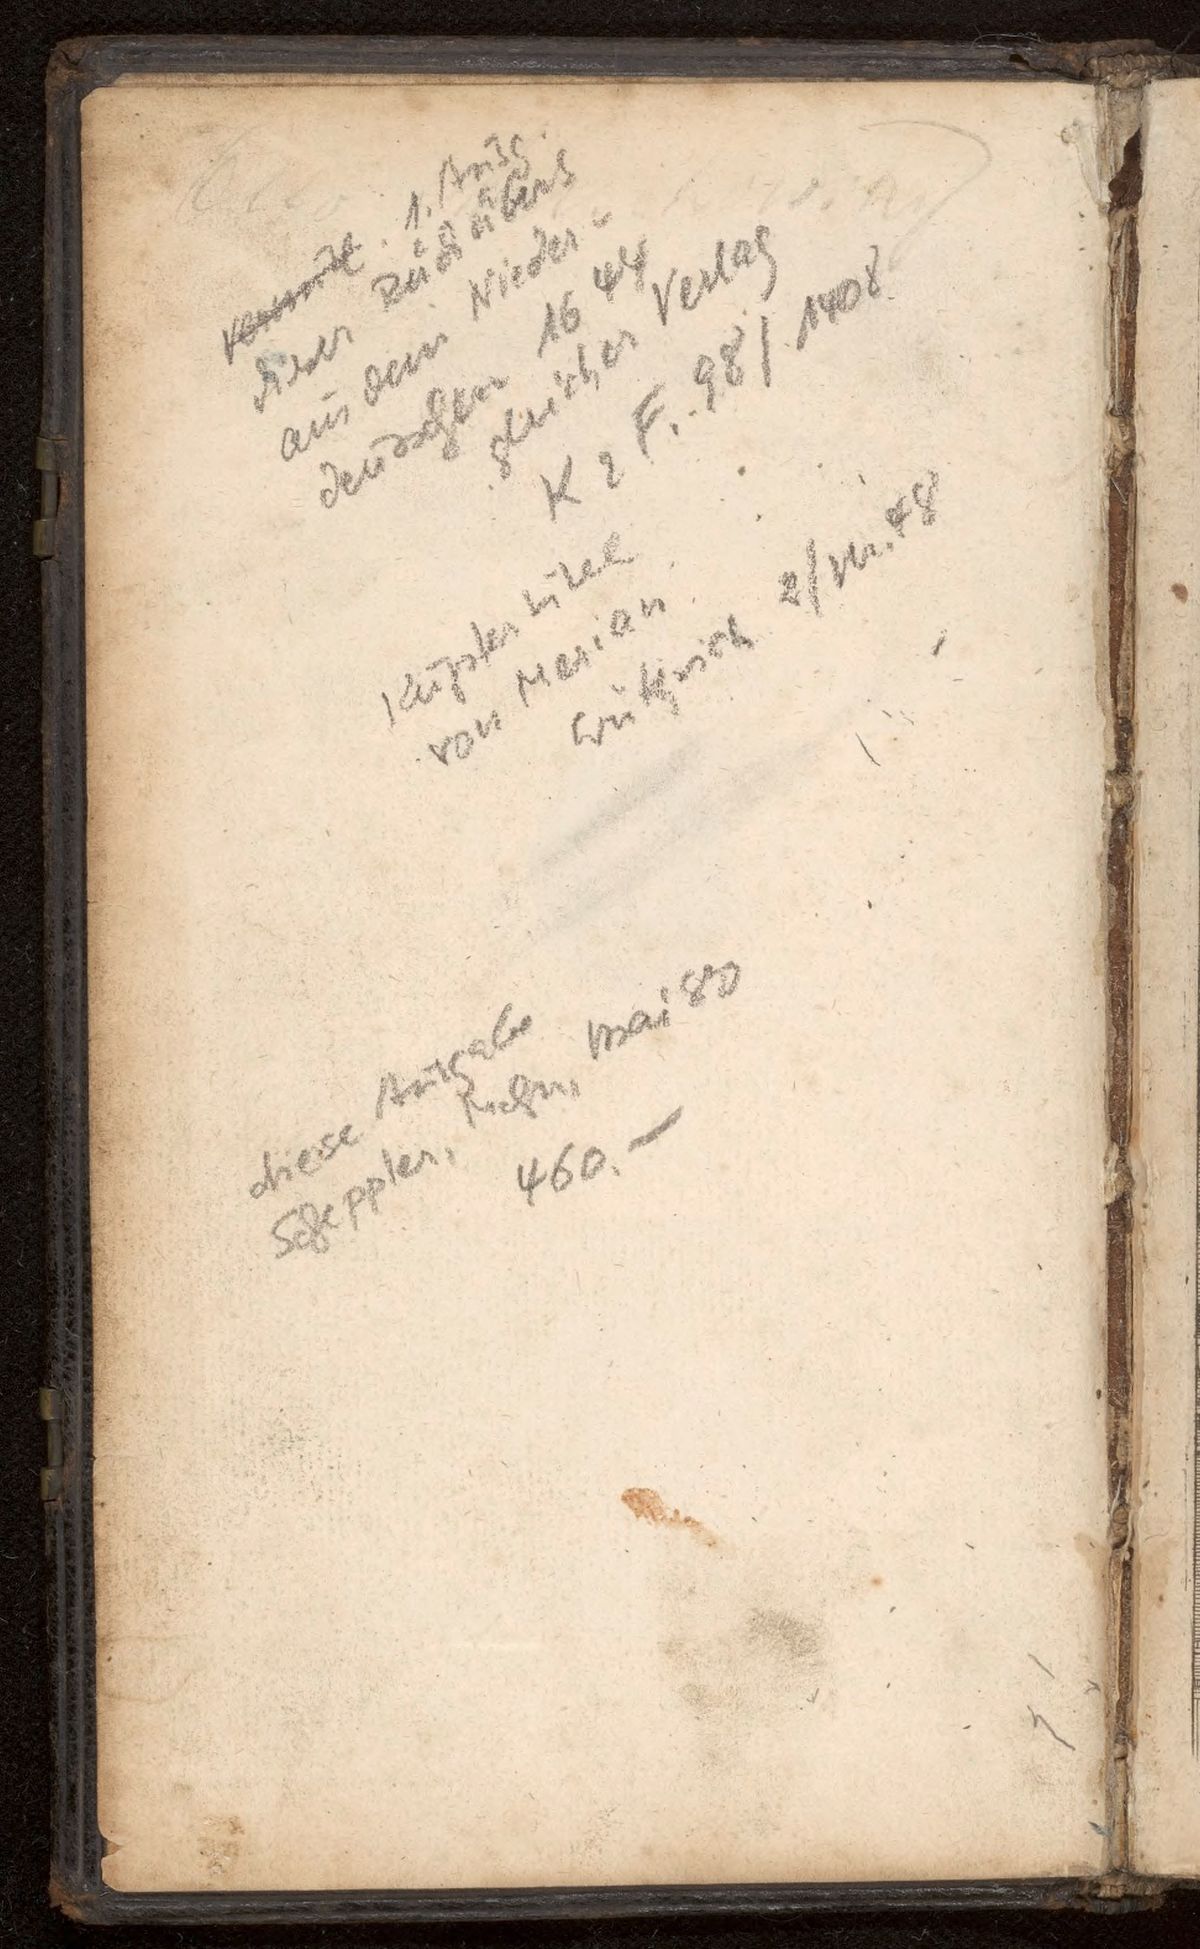 1. Ausg.
aus dem Nieder-
deutschen 1644
gleicher Verlag
K 2 F. 98/ 1408
Kupfertitel
von Merian
2/ Nr. 48
diese Ausgabe
Scheppler, Mchn, Mai 80
460.—